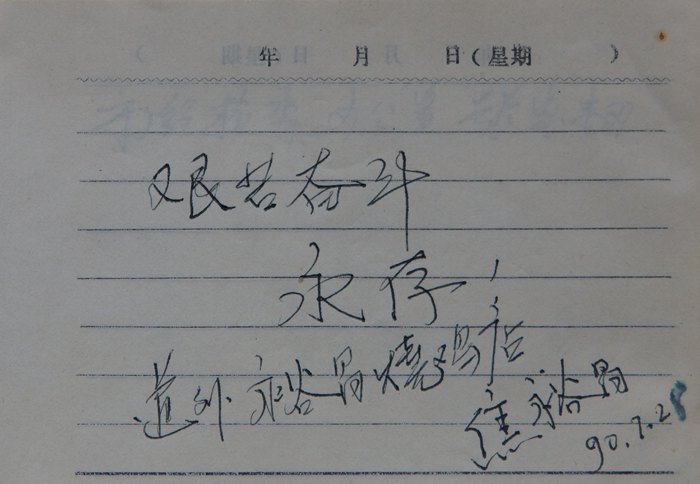 年 月 日(星期 )
艰苦奋斗
永存!
道外永裕昌烧鸡店
焦永裕昌
90.7.28